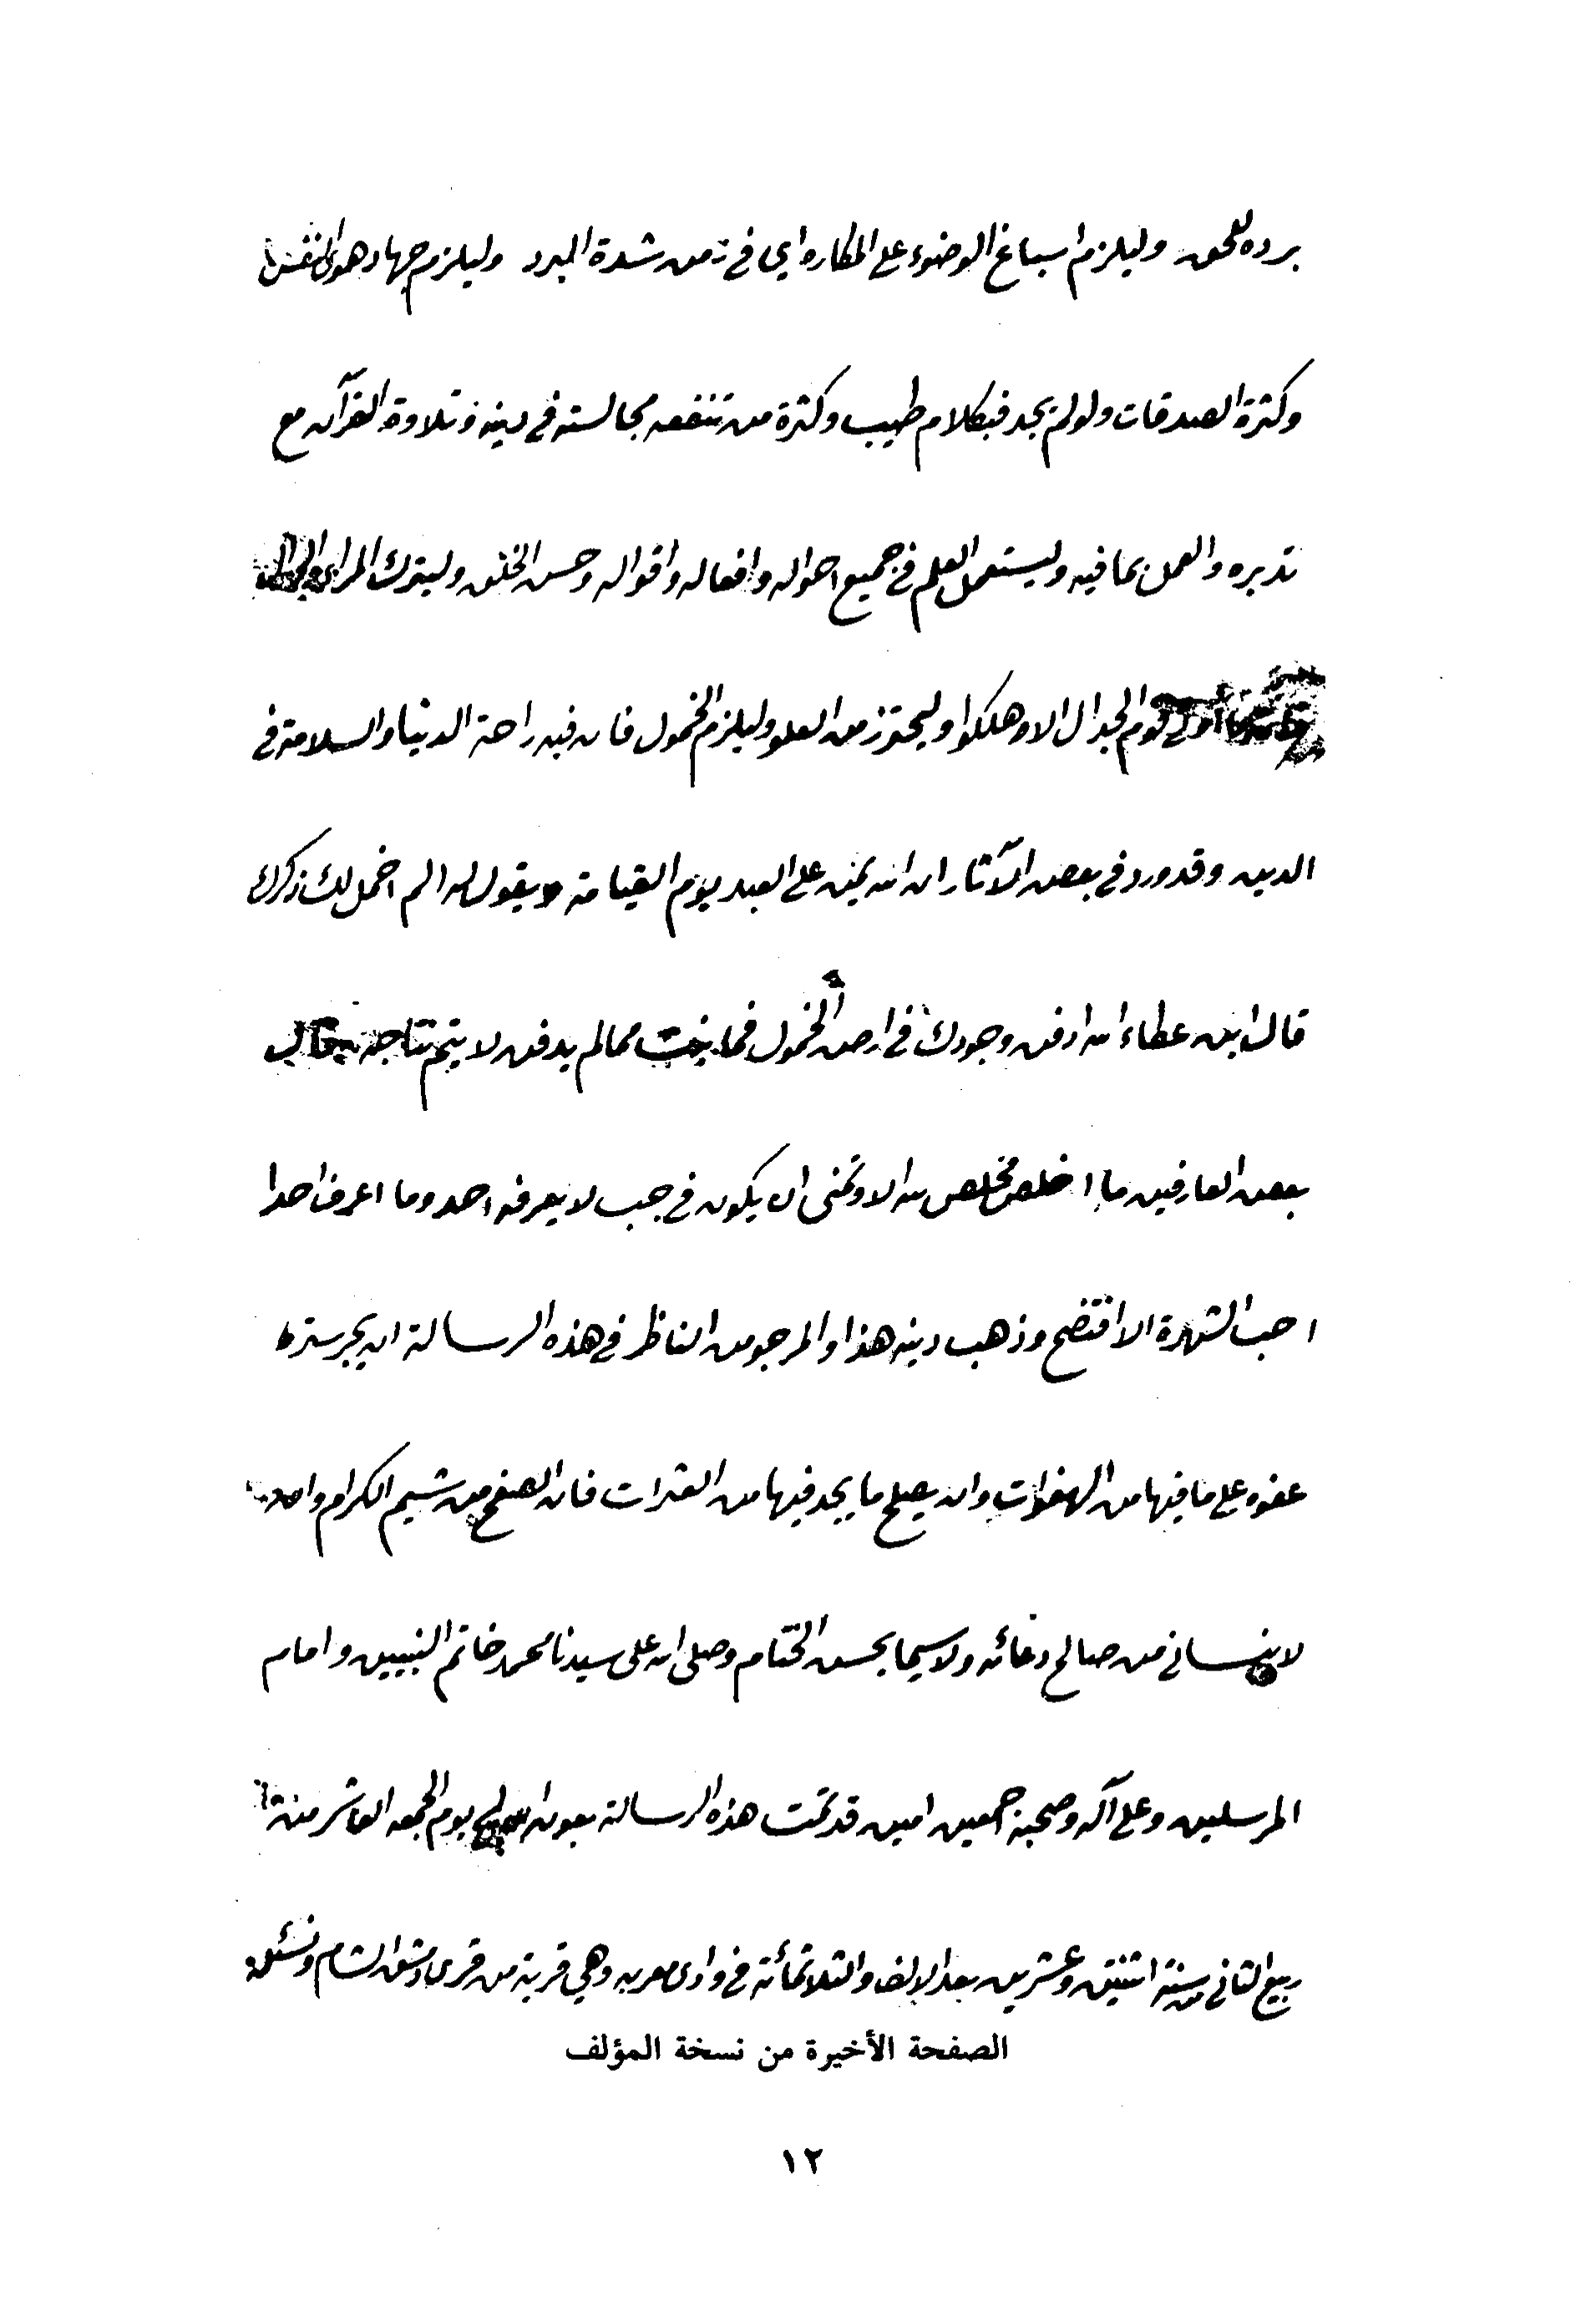 برده للحق وليلزم اسباغ الوضوء على المكاره اي في زمن شدة البرد وليلزم جهاد هوى النفس
وكثرة الصدقات ولو لم يجد فبكلام طيب وكثرة من تنفعه مجالسته في دينه وتلاوة القرآن مع
تدبره والعمل بما فيه وليستعمل العلم في جميع احواله وافعاله واقواله وحسن الخلق وليترك المراء والجدال
قوم الجدال الا وهلكوا وليحترز من العلو وليلزم الخمول فان فيه راحة الدنيا والسلامة في
الدين وقد ورد في بعض الآثار ان الله يمن على العبد يوم القيامة ويقول له الم اخمل لك ذكرك
قال ابن عطاء الله ادفن وجودك في ارض الخمول فما نبت مما لم يدفن لا يتم نتاجه وقال
بعض العارفين ما اخلص مخلص لله الا وتمنى ان يكون في جب لا يعرفه احد وما اعرف احدا
احب الشهرة الا افتضح وذهب دينه هذا والمرجو من الناظر في هذه الرسالة ان يجر ستره
عفوه على ما فيها من الهفوات وان يصلح ما يجد فيها من العثرات فان الصفح من شيم الكرام وان
لا ينساني من صالح دعائه ولا سيما بحسن الختام وصلى الله على سيدنا محمد خاتم النبيين وامام
المرسلين وعلى آله وصحبه اجمعين امين قد تمت هذه الرسالة بعون الله يوم الجمعه العاشر من
ربيع الثاني من سنة اثنتين وعشرين بعد الالف والثلاثمائة في وادي معربه وهي قرية من قرى دمشق الشام ونسئله
الصفحة الأخيرة من نسخة المؤلف
١٢